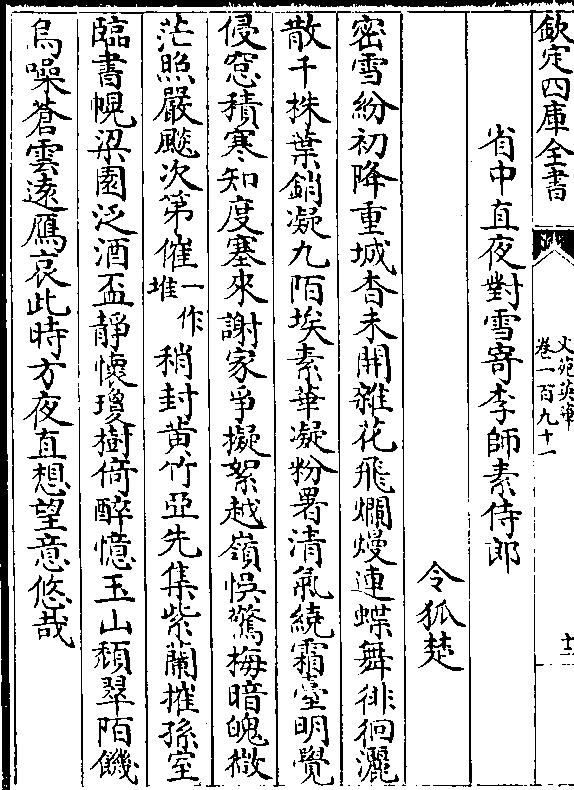 欽定四庫全書
文苑英華
卷一百九十一
十二
省中直夜對雪寄李師素侍郎
令狐楚
密雪紛初降重城杳未開雜花飛爛熳連蝶舞徘徊灑
散千株葉銷凝九陌埃素華凝粉署清氣繞霜臺明覺
侵窓積寒知度塞來謝家爭擬絮越嶺悞驚梅暗魄微
茫照嚴飈次第催一作堆稍封黄竹亞先集紫蘭摧孫室
臨書幌梁園泛酒盃靜懷瓊樹倚醉憶玉山頽翠陌饑
烏噪蒼雲遠鴈哀此時方夜直想望意悠哉